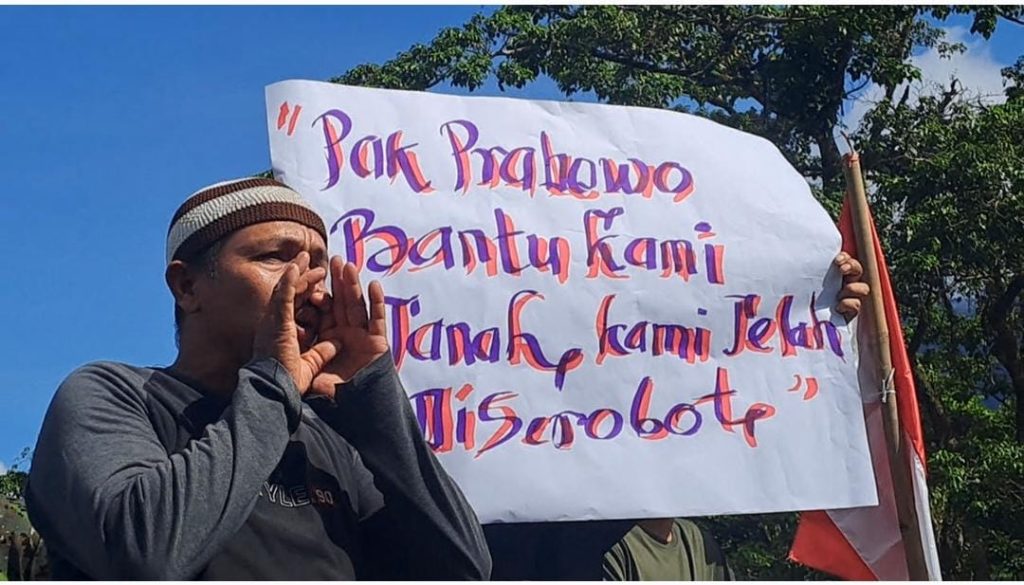 "Pak Prabowo
Bantu Kami
Tanah, kami Telah
Diserobot"